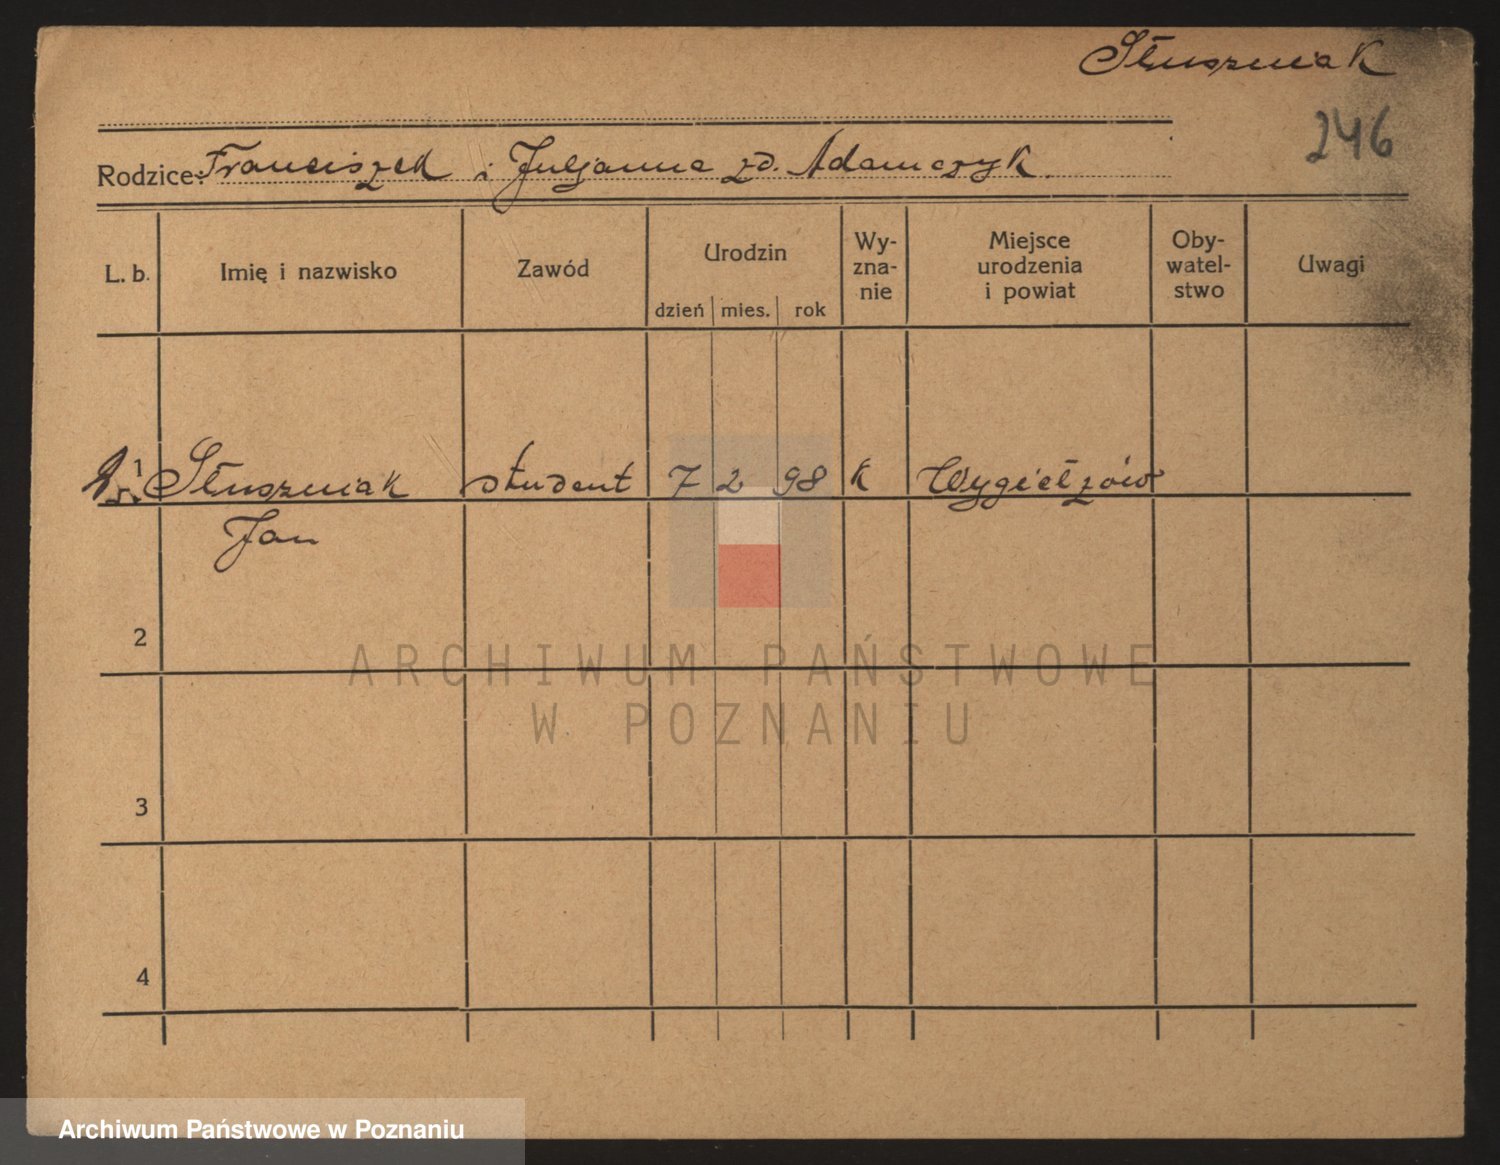 Słuszniak
246
Rodzice: Franciszek i Juljanna zd. Adamczyk.
L. b. Imię i nazwisko Zawód Urodzin dzień mies. rok Wyznanie Miejsce urodzenia i powiat Obywatelstwo Uwagi
1 Słuszniak student 7 2 98 k Wygiełzów
Jan
2
3
4
ARCHIWUM PAŃSTWOWE
W POZNANIU
Archiwum Państwowe w Poznaniu